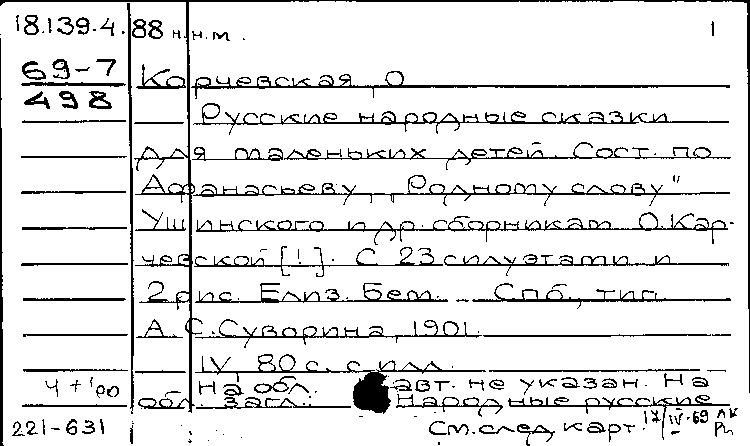 18.139.4.88 н.н.т. 1
69-7
498
Корчевская, О
Русские народные сказки
для маленьких детей. Сост. по
Афанасьеву, „Родному слову"
Ушинского и др. сборникам О. Кар-
чевской [!]. С 23 силуэтами и
2 рис. Елиз. Бем. Спб., тип.
А.С. Суворина, 1901.
IV, 80 с. с илл.
На обл. авт. не указан. На
обл. загл.: Народные русские
221-631 См. след. карт. 17/IV-69